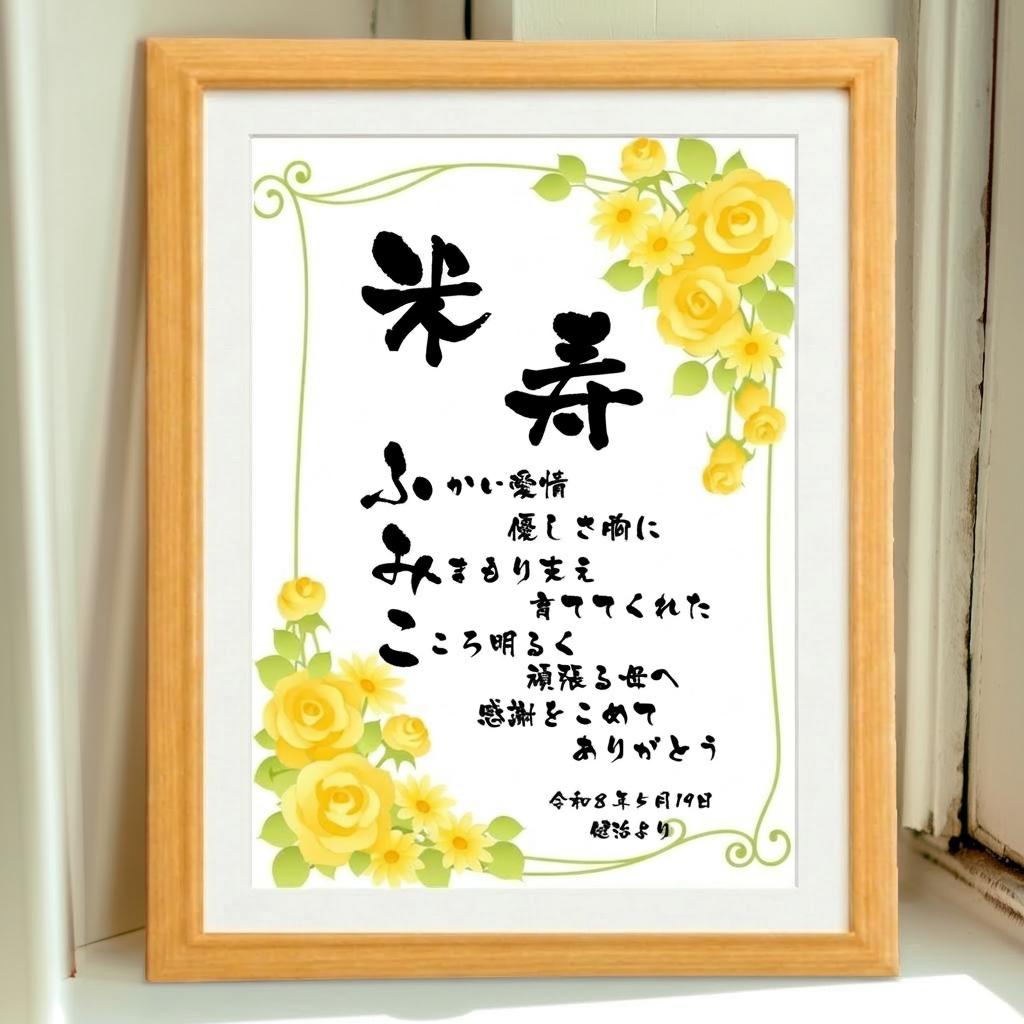 米寿
ふかい愛情
優しさ胸に
みまもり支え
育ててくれた
こころ明るく
頑張る母へ
感謝をこめて
ありがとう
令和8年5月19日
健治より